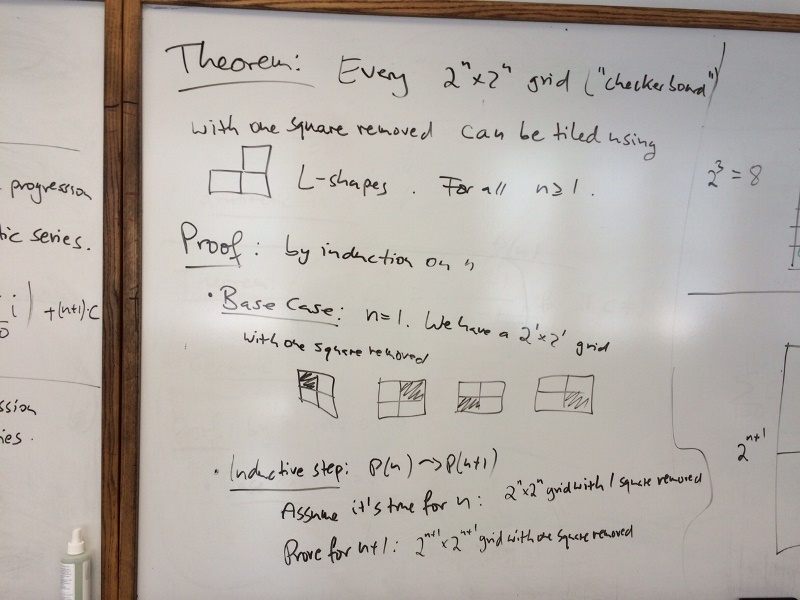 progression
tic series.
i) + (n+1)·C
0
ssion
ies.
Theorem: Every 2ⁿ×2ⁿ grid ("checkerboard")
with one square removed can be tiled using
L-shapes. For all n≥1.
Proof: by induction on n
· Base Case: n=1. We have a 2¹×2¹ grid
with one square removed
· Inductive step: P(n) → P(n+1)
Assume it's true for n: 2ⁿ×2ⁿ grid with 1 square removed
Prove for n+1: 2ⁿ⁺¹×2ⁿ⁺¹ grid with one square removed
2³ = 8
2ⁿ⁺¹